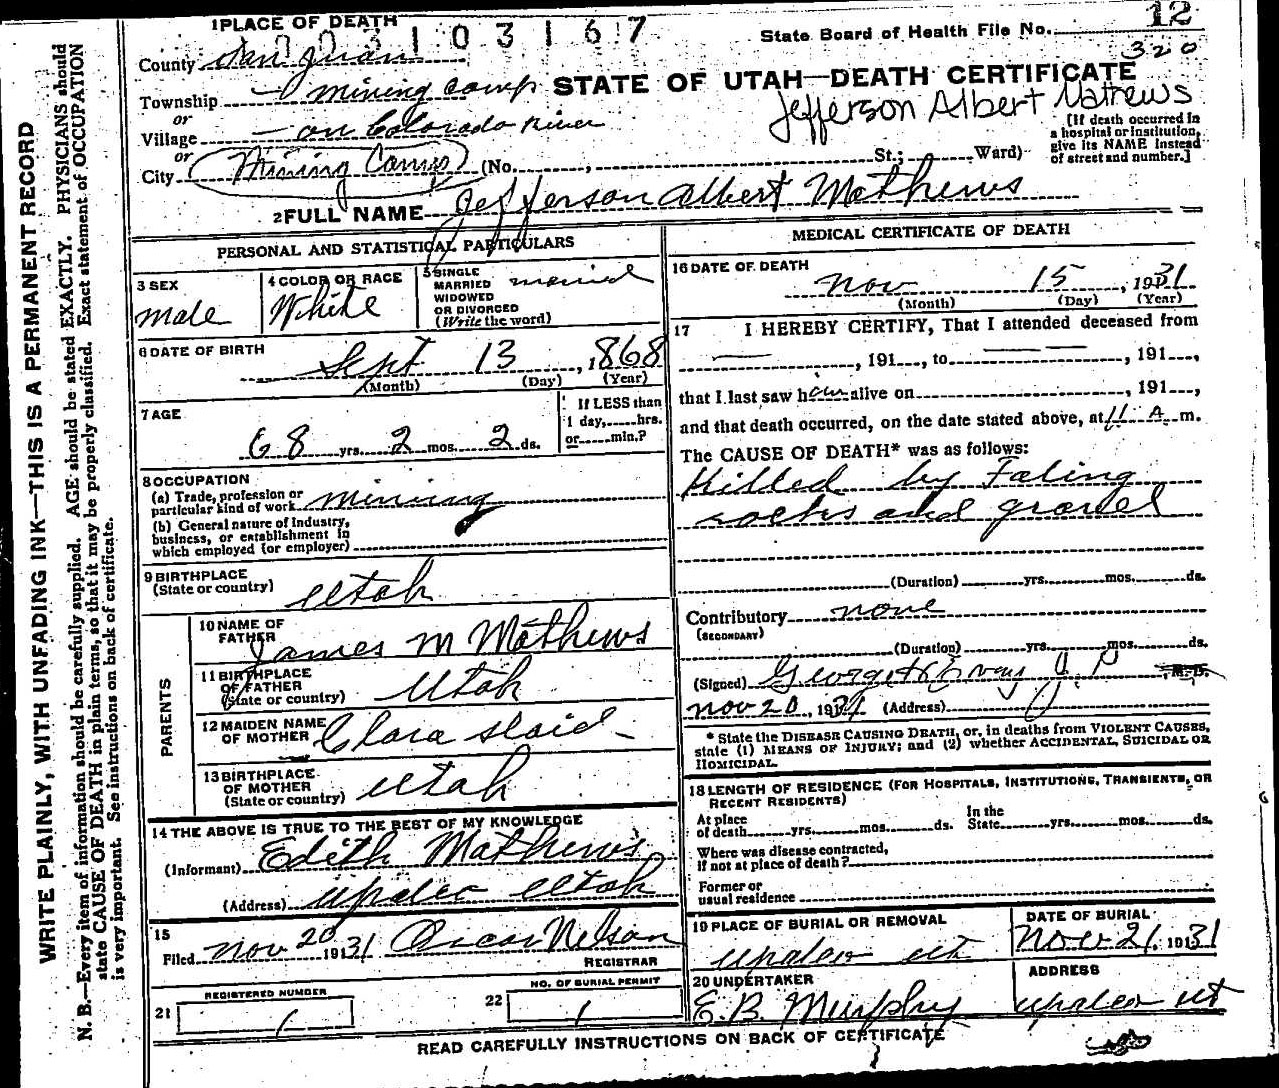 WRITE PLAINLY, WITH UNFADING INK—THIS IS A PERMANENT RECORD
N. B.—Every item of information should be carefully supplied. AGE should be stated EXACTLY. PHYSICIANS should
state CAUSE OF DEATH in plain terms, so that it may be properly classified. Exact statement of OCCUPATION
is very important. See instructions on back of certificate.
1 PLACE OF DEATH
0 0 3 1 0 3 1 6 7
State Board of Health File No. 12
320
County San Juan
STATE OF UTAH—DEATH CERTIFICATE
Township — mining camp
Jefferson Albert Mathews
or
Village — on Colorado River
or
City Mining Camp (No. St.; Ward)
[If death occurred in
a hospital or institution,
give its NAME instead
of street and number.]
2 FULL NAME Jefferson Albert Mathews
PERSONAL AND STATISTICAL PARTICULARS
3 SEX
male
4 COLOR OR RACE
White
5 SINGLE
MARRIED
WIDOWED
OR DIVORCED
(Write the word)
married
6 DATE OF BIRTH
Sept 13, 1868
(Month) (Day) (Year)
7 AGE
68 yrs. 2 mos. 2 ds.
If LESS than
1 day, hrs.
or min.?
8 OCCUPATION
(a) Trade, profession or
particular kind of work mining
(b) General nature of Industry,
business, or establishment in
which employed (or employer)
9 BIRTHPLACE
(State or country) Utah
PARENTS
10 NAME OF
FATHER James M Mathews
11 BIRTHPLACE
OF FATHER
(State or country) Utah
12 MAIDEN NAME
OF MOTHER Clara Slaid
13 BIRTHPLACE
OF MOTHER
(State or country) Utah
14 THE ABOVE IS TRUE TO THE BEST OF MY KNOWLEDGE
(Informant) Edith Mathews
(Address) Upalco Utah
15
Filed Nov 20 1931 Oscar Nelson
REGISTRAR
21 REGISTERED NUMBER
1
22 NO. OF BURIAL PERMIT
1
MEDICAL CERTIFICATE OF DEATH
16 DATE OF DEATH
Nov 15, 1931
(Month) (Day) (Year)
17 I HEREBY CERTIFY, That I attended deceased from
— , 191 , to — — , 191 ,
that I last saw h alive on , 191 ,
and that death occurred, on the date stated above, at 11 A m.
The CAUSE OF DEATH* was as follows:
Killed by Faling
rocks and gravel
(Duration) yrs. mos. ds.
Contributory none
(SECONDARY)
(Duration) yrs. mos. ds.
(Signed) George H J P M.D.
Nov 20, 1931 (Address)
* State the DISEASE CAUSING DEATH, or, in deaths from VIOLENT CAUSES,
state (1) MEANS OF INJURY; and (2) whether ACCIDENTAL, SUICIDAL OR
HOMICIDAL.
18 LENGTH OF RESIDENCE (FOR HOSPITALS, INSTITUTIONS, TRANSIENTS, OR
RECENT RESIDENTS)
At place
of death yrs. mos. ds.
In the
State yrs. mos. ds.
Where was disease contracted,
if not at place of death?
Former or
usual residence
19 PLACE OF BURIAL OR REMOVAL
Upalco Ut
DATE OF BURIAL
Nov 21, 1931
20 UNDERTAKER
E. B. Murphy
ADDRESS
Upalco Ut
READ CAREFULLY INSTRUCTIONS ON BACK OF CERTIFICATE